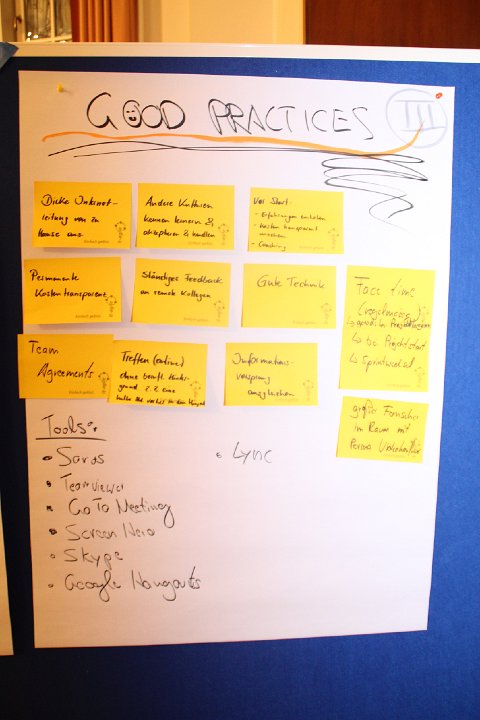 GOOD PRACTICES
III
Dicke Internet-
leitung von zu
Hause aus
Andere Kulturen
kennen lernen &
akzeptieren &
Vor Start:
- Erfahrungen einholen
- Kosten transparent
machen
- Coaching
Permanente
Kostentransparenz
Ständiges Feedback
an remote Kollegen
Gute Technik
Face time
(regelmässig)
↳ gerade in
↳ bei Projektstart
↳ Sprintwechsel
Team
Agreements
Treffen (online)
ohne berufl. Hinter-
grund z.B. eine
halbe Std. vorher in den
Informations-
vorsprung
ausgleichen
große Fernseher
im Raum mit
Tools:
• Saros
• TeamViewer
• GoTo Meeting
• Screen Hero
• Skype
• Google Hangouts
• Lync